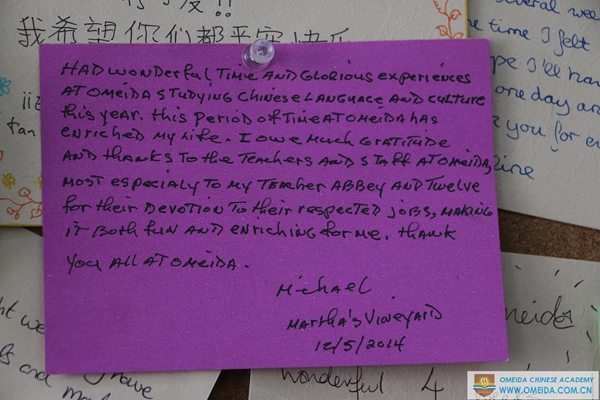 我希望你们都平安快乐
HAD WONDERFUL TIME AND GLORIOUS EXPERIENCES
AT OMEIDA STUDYING CHINESE LANGUAGE AND CULTURE
THIS YEAR. THIS PERIOD OF TIME AT OMEIDA HAS
ENRICHED MY LIFE. I OWE MUCH GRATITUDE
AND THANKS TO THE TEACHERS AND STAFF AT OMEIDA,
MOST ESPECIALY TO MY TEACHER ABBEY AND TWELVE
FOR THEIR DEVOTION TO THEIR RESPECTED JOBS, MAKING
IT BOTH FUN AND ENRICHING FOR ME. THANK
YOU ALL AT OMEIDA.
Michael
MARTHA'S VINEYARD
12/5/2014
several
time I felt
I'll
one day
you for
wonderful 4
OMEIDA CHINESE ACADEMY
WWW.OMEIDA.COM.CN